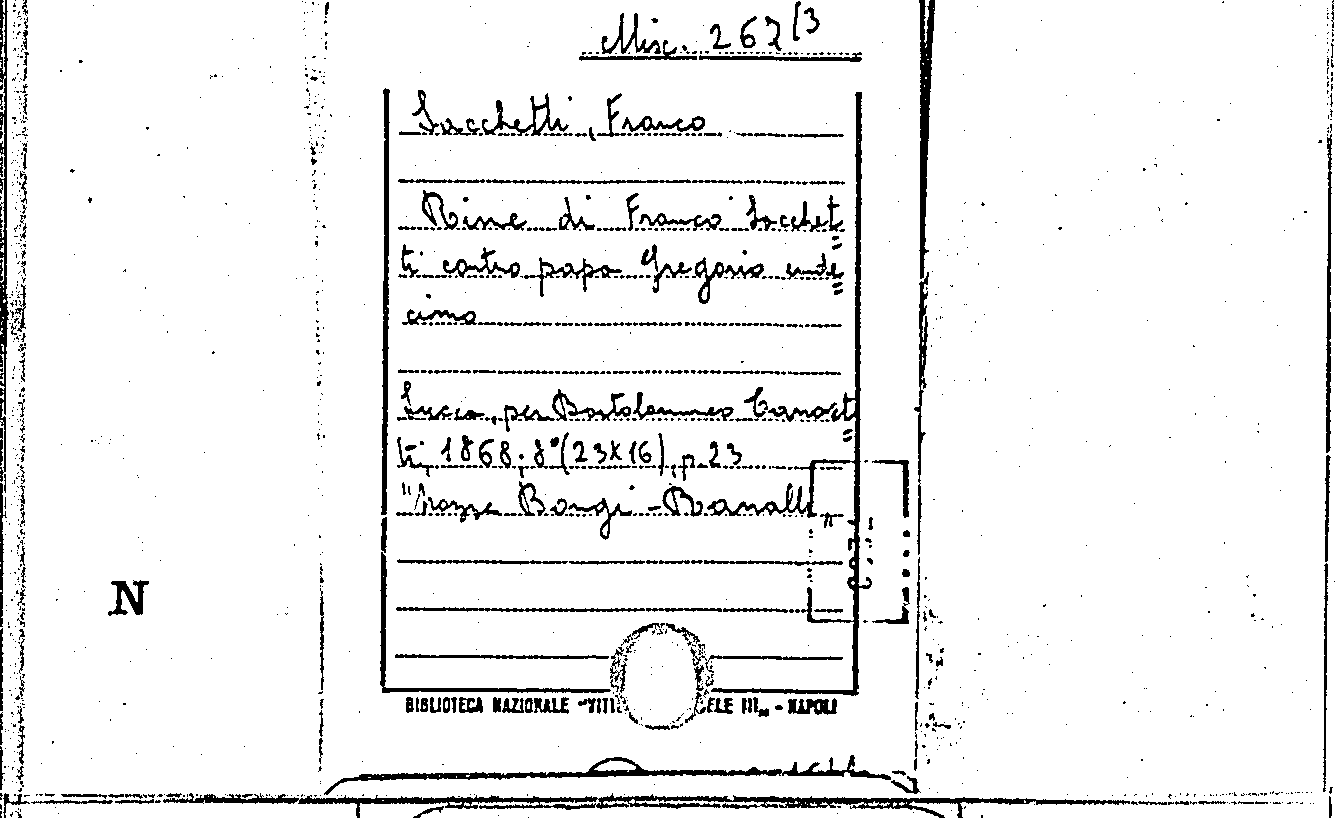 Misc. 267/3
Sacchetti, Franco
Rime di Franco Sacchet=
ti contro papa Gregorio unde=
cimo
Lucca, per Bartolommeo Canovet=
ti, 1868; 8°(23x16), p. 23
"Nozze Bongi - Ranalli"
N
BIBLIOTECA NAZIONALE "VITT ELE III„ - NAPOLI